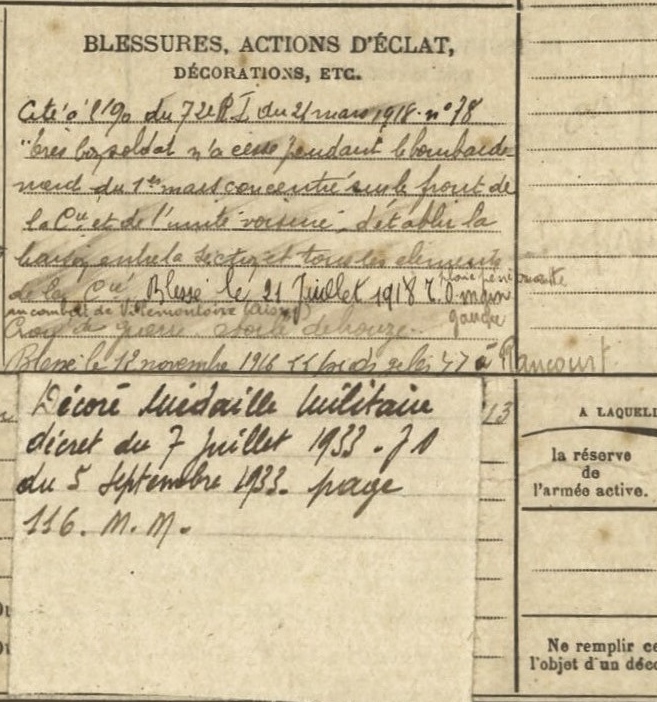 BLESSURES, ACTIONS D'ÉCLAT,
DÉCORATIONS, ETC.
Cité à l'/90 du 72e R I du 21 mars 1918 n° 78
"très bon soldat n'a cessé pendant le bombarde-
ment du 1er mars concentré sur le front de
la Cie et de l'unité voisine, d'établir la
liaison entre la section et tous les elements
de la Cie" Blessé le 21 Juillet 1918 main
plaie pénétrante
gauche
au combat de Villemontoire (Aisne)
Croix de guerre étoile de bronze.
Blessé le 12 novembre 1916 pieds gelés à Rancourt.
Décoré Médaille Militaire
décret du 7 Juillet 1933 - J O
du 5 Septembre 1933. page
116. M. M.
13
A LAQUELL
la réserve
de
l'armée active.
Ne remplir ce
l'objet d'un déco